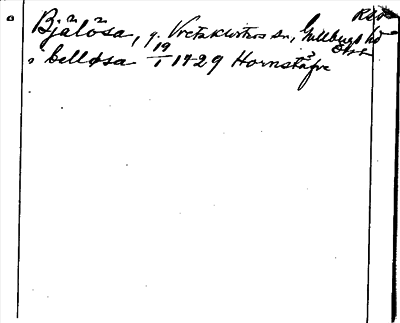 Bjälösa, g. Vretaklosters sn, Gullbergs hd
i belløsa 19/1 1729 Hornstafve